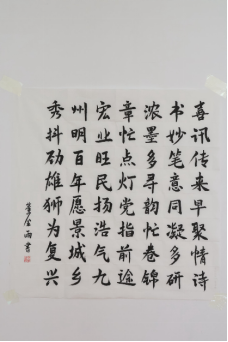 喜讯传来早聚情诗
书妙笔意同凝多研
浓墨多寻韵忙卷锦
章忙点灯党指前途
宏业旺民扬浩气九
州明百年愿景城乡
秀抖劢雄狮为复兴
金雨书